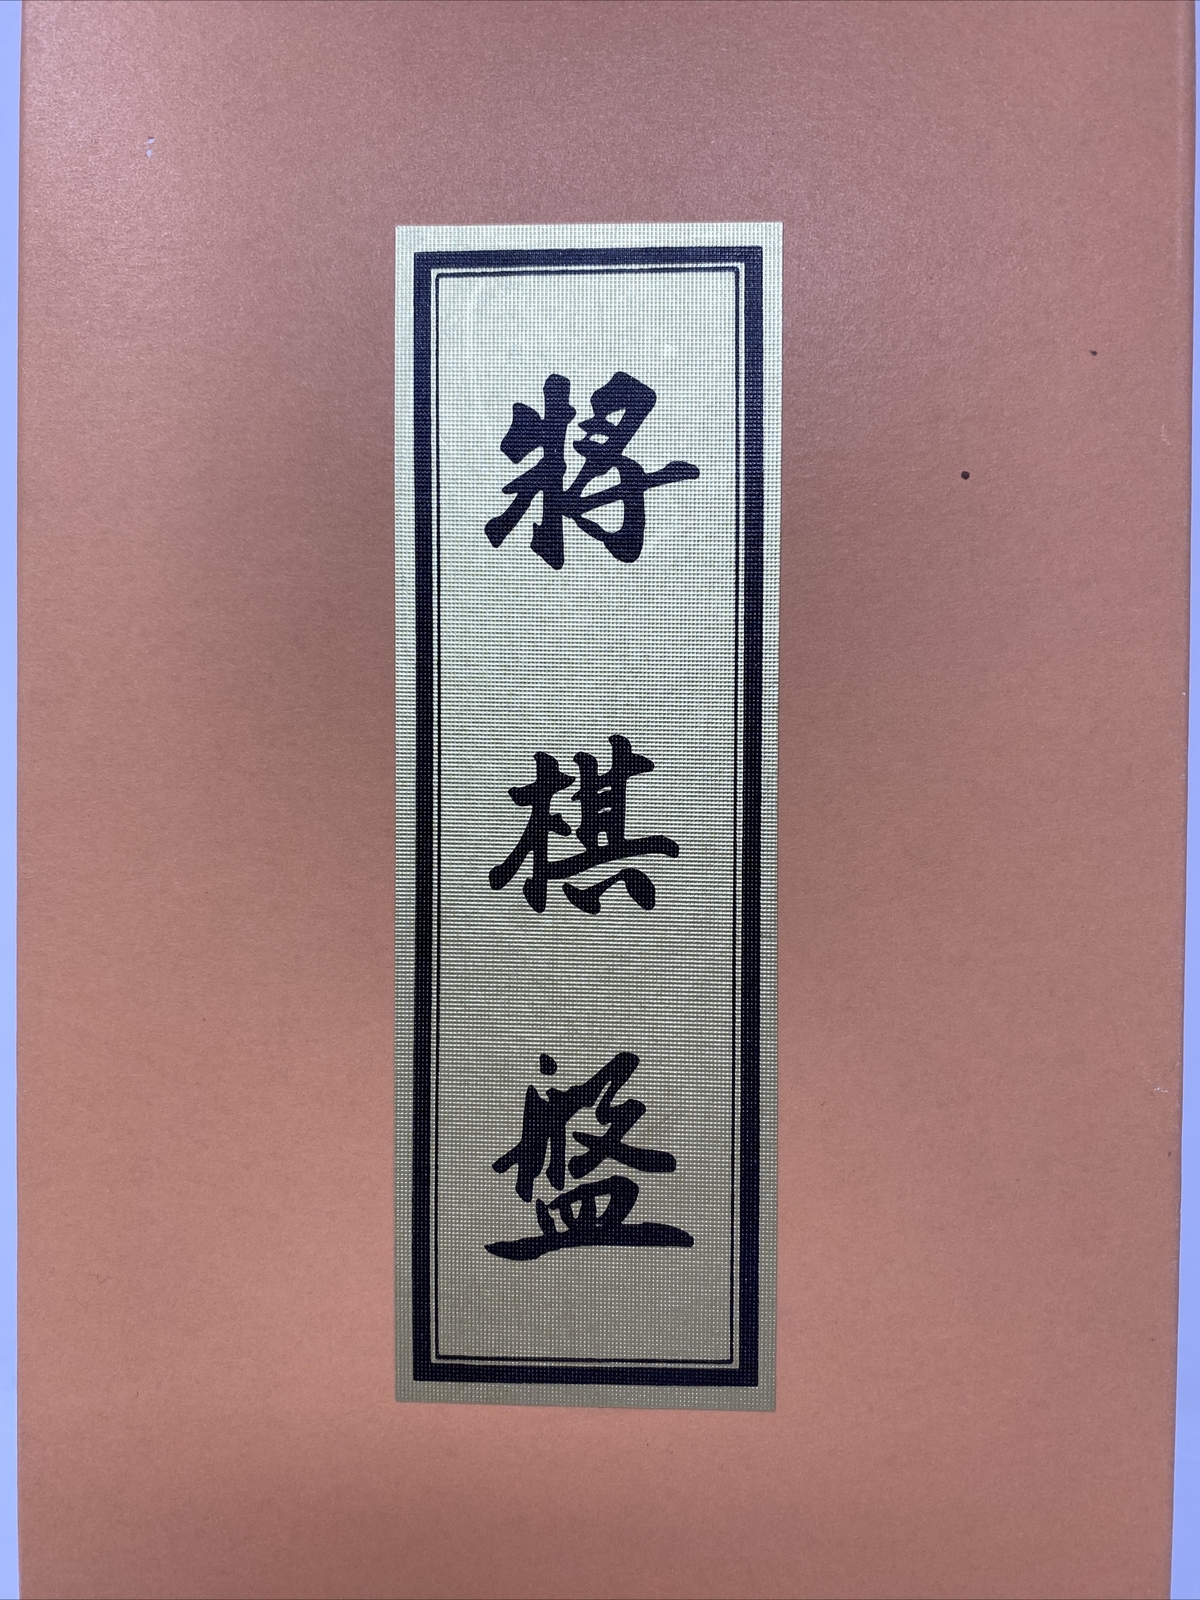 将棋盤